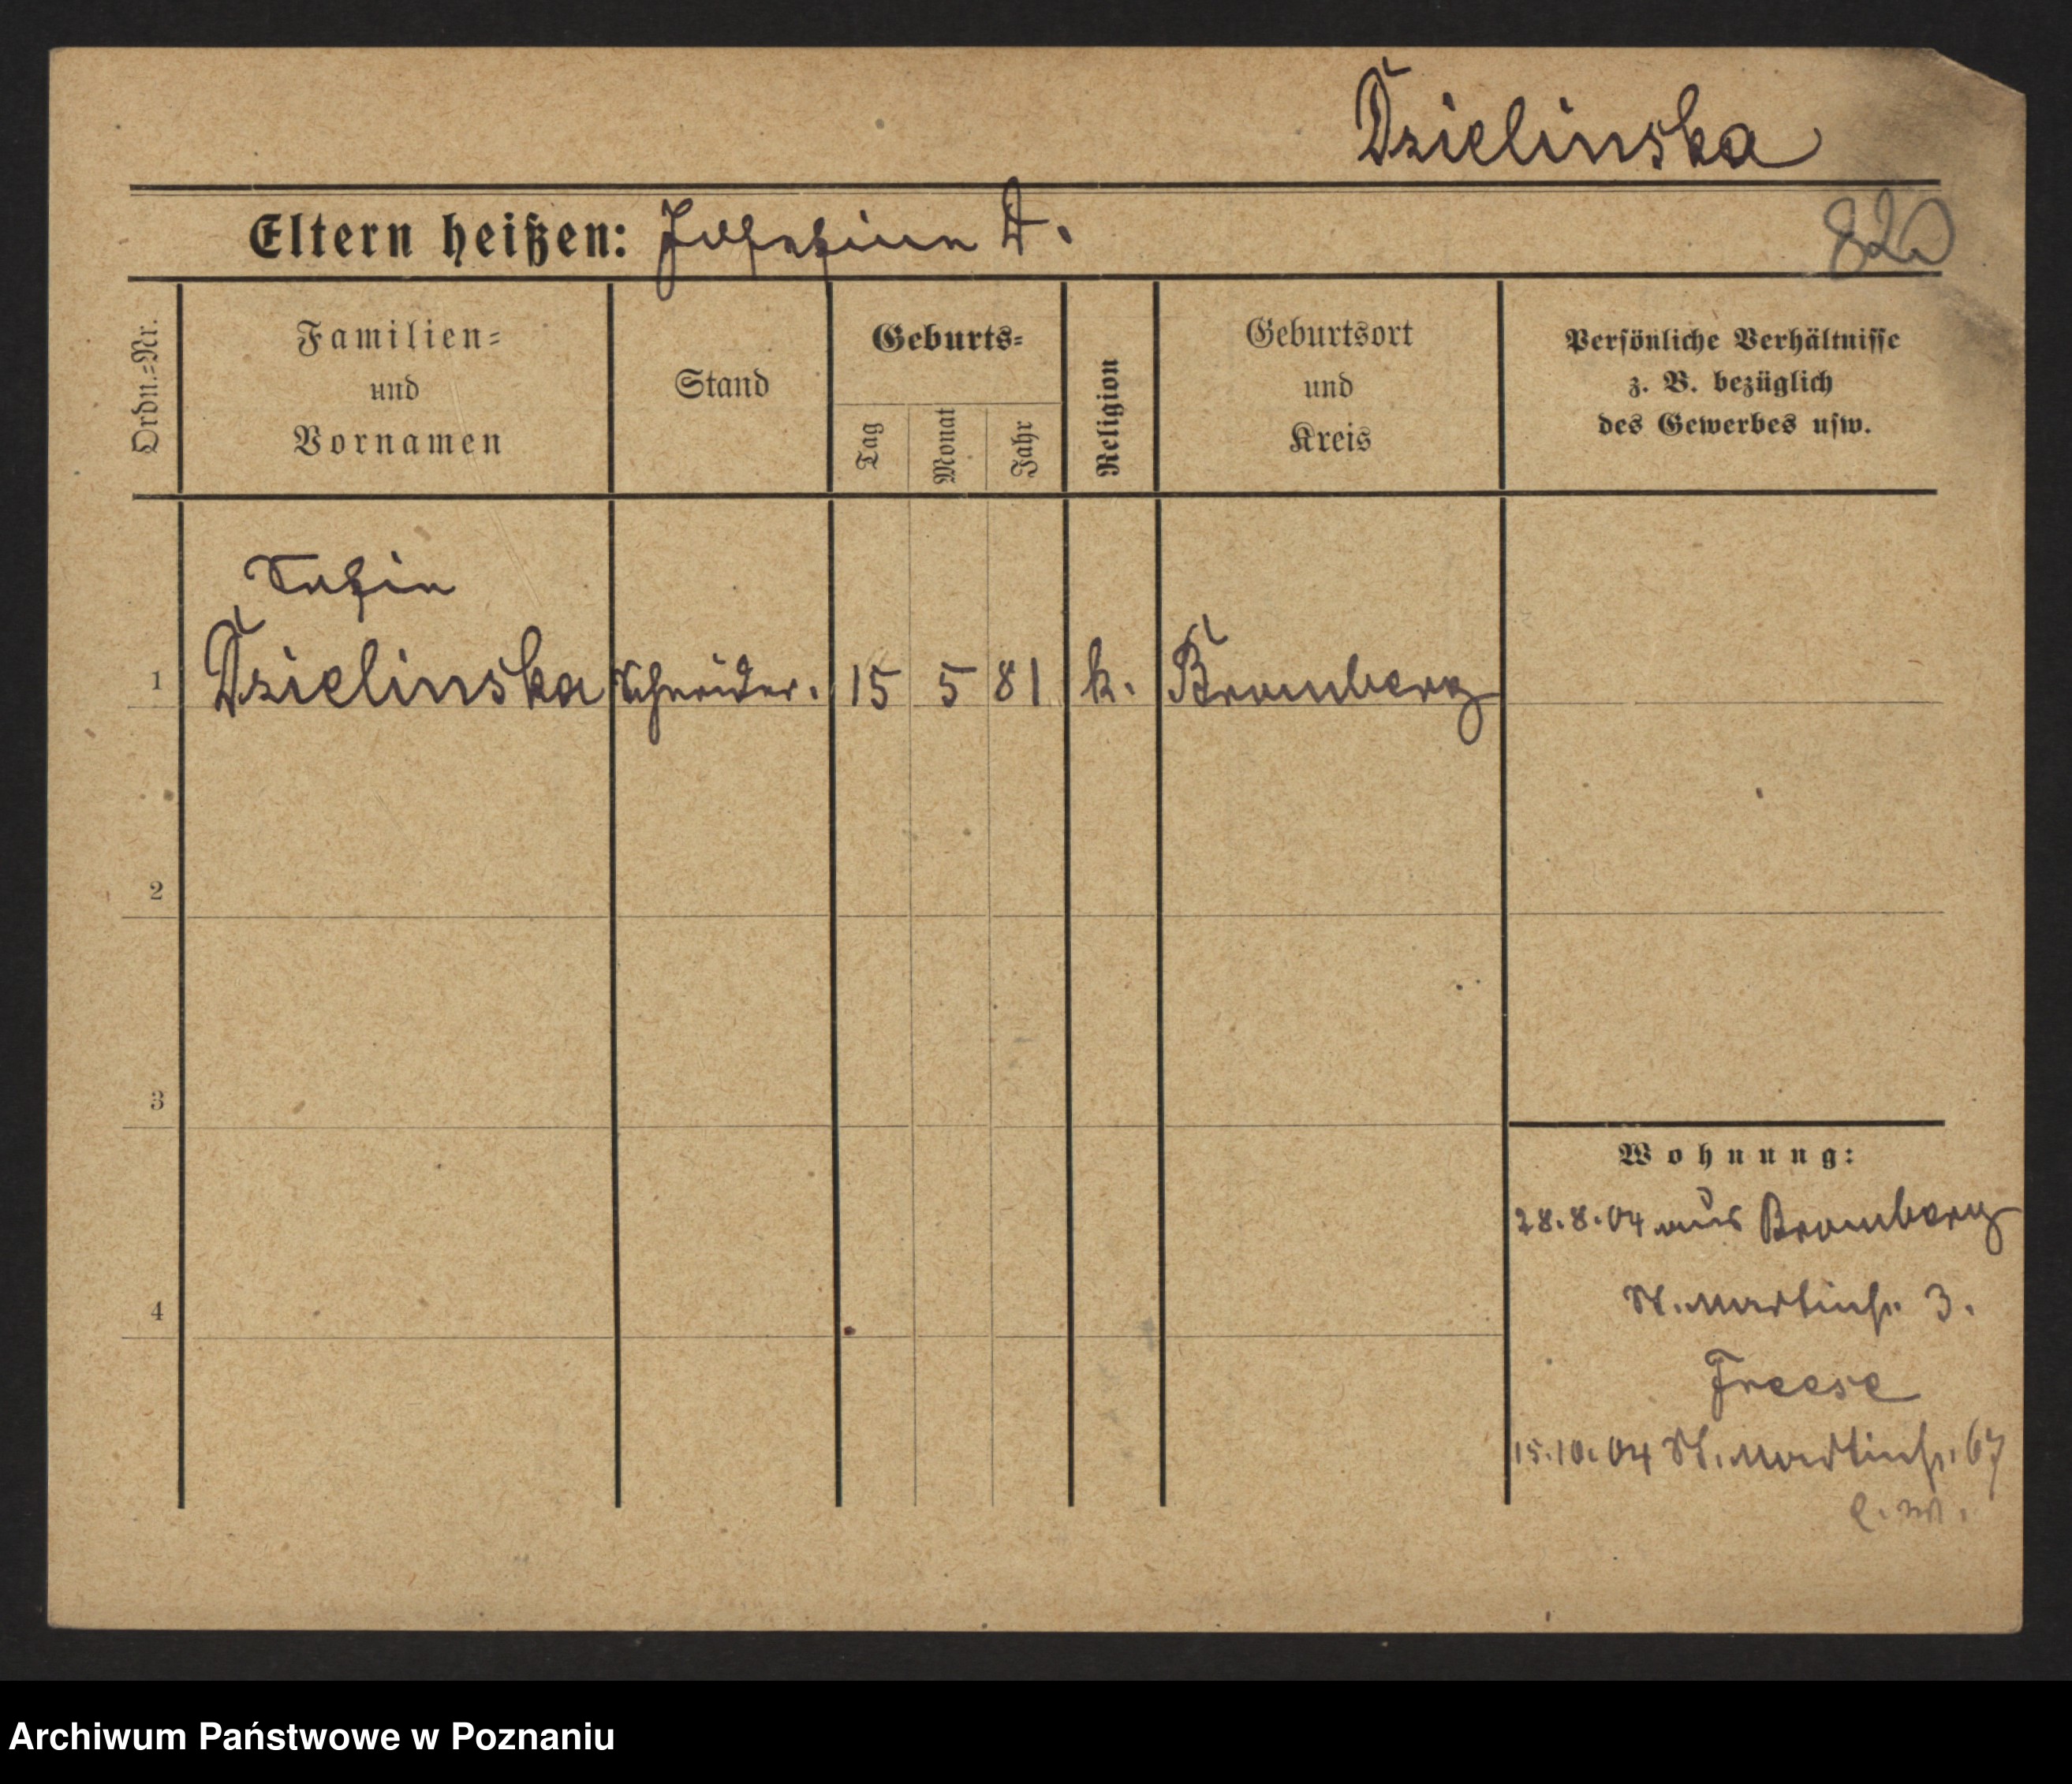 Dzielinska
Eltern heißen: Josefine D.
820
Ordn.-Nr.
Familien-
und
Vornamen
Stand
Geburts-
Tag
Monat
Jahr
Religion
Geburtsort
und
Kreis
Persönliche Verhältnisse
z. B. bezüglich
des Gewerbes usw.
Sofie
1 Dzielinska Schneider. 15 5 81 k. Bromberg
2
3
4
Wohnung:
28.8.04 aus Bromberg
St. Martinstr. 3.
Freese
15.10.04 St. Martinstr. 67
Archiwum Państwowe w Poznaniu